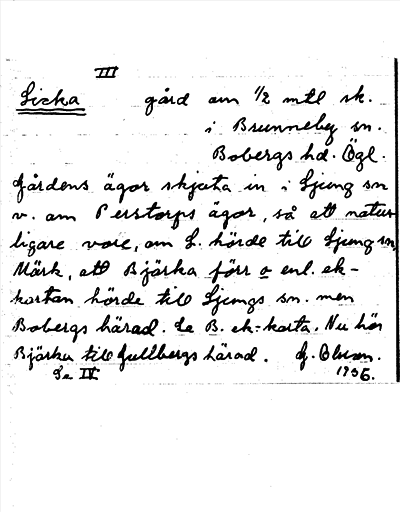 III
Licka gård om 1/2 mtl sk.
i Brunneby sn.
Bobergs hd. Ögl.
Gårdens ägor skjuta in i Ljung sn
v. om Perstorps ägor, så att natur-
ligare vore, om L. hörde till Ljung sn.
Märk, att Bjärka förr o enl. ek-
kartan hörde till Ljungs sn. men
Bobergs härad. Se B. ek-karta. Nu hör
Bjärka till Gullbergs härad. G. Olson.
Se IV 1936.